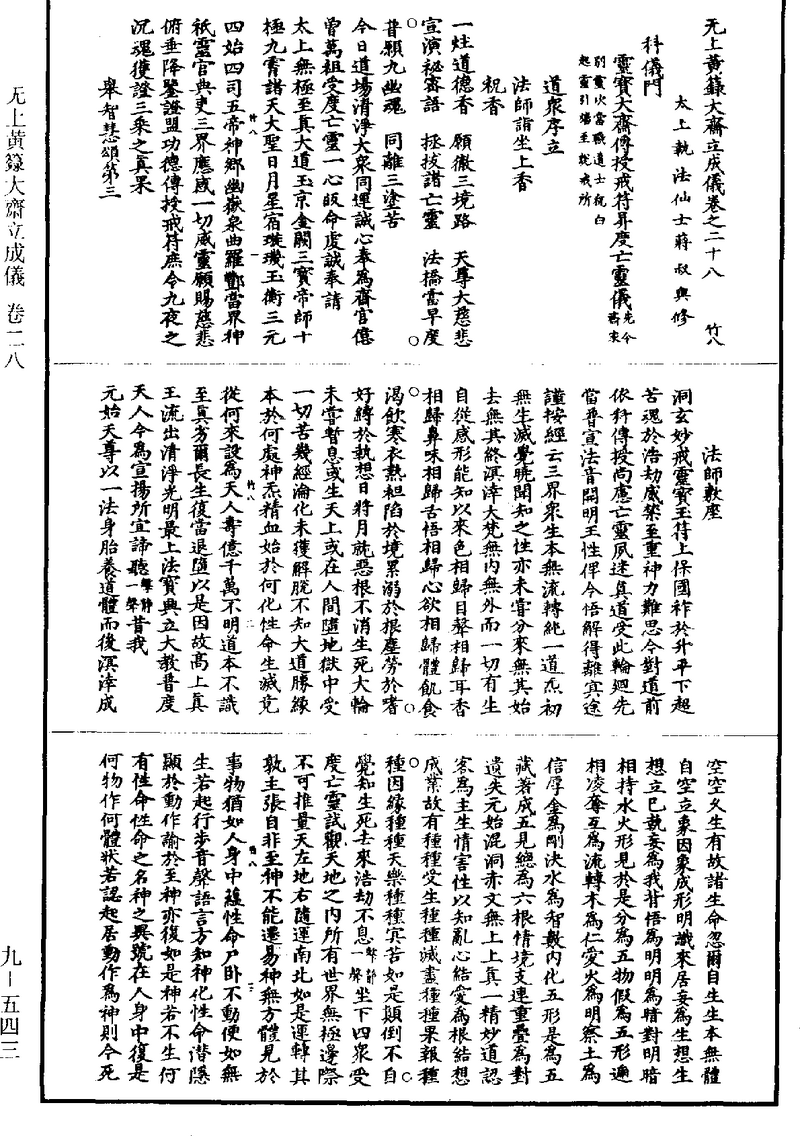 无上黃籙大齋立成儀卷之二十八 竹八
太上執法仙士蔣叔輿修
科儀門
靈寶大齋傳授戒符昇度亡靈儀
道眾序立
法師詣坐上香
祝香
一炷道德香 願徹三境路 天尊大慈悲
宣演秘密語 拯拔諸亡靈 法橋當早度
普願九幽魂 同離三塗苦
今日道場清淨大眾同運誠心奉為齋官億
曾萬祖受度亡靈一心皈命虔誠奉請
太上無極至真大道玉京金闕三寶帝師十
極九霄諸天大聖日月星宿璇璣玉衡三元
四始四司五帝神鄉幽嶽泉曲羅酆當界神
祇靈官典吏三界應感一切威靈願賜慈悲
俯垂降鑒證盟功德傳授戒符庶令九夜之
沉魂獲證三乘之真果
舉智慧頌第三
法師敷座
洞玄妙戒靈寶玉符上保國祚於升平下超
苦魂於浩劫感榮至重神力難思今對道前
依科傳授尚慮亡靈夙迷真道受此輪迴先
當普宣法音開明王性俾令悟解得離冥途
謹按經云三界眾生本無流轉純一道炁初
無生滅覺曉聞知之性亦未嘗分來無其始
去無其終溟涬大梵無內無外而一切有生
自從感形能知以來色相歸目聲相歸耳香
相歸鼻味相歸舌悟相歸心欲相歸體飢食
渴飲寒衣熱袒陷於境累溺於根塵勞於嗜
好縛於執想日將月就惡根不消生死大輪
未嘗暫息或生天上或在人間墮地獄中受
一切苦幾經淪化未獲解脫不知大道勝緣
本於何處神炁精血始於何化性命生滅竟
從何來設為天人壽億千萬不明道本不識
至真芴爾長生復當退墮以是因故高上真
王流出清淨光明最上法寶興立大教普度
天人今為宣揚所宣諦聽擊靜一聲昔我
元始天尊以一法身胎養道體而後溟涬成
空空久生有故諸生命忽爾自生生本無體
自空立象因象成形明識來居妄為生想生
想立已執妄為我背悟為明明為暗對明暗
相持水火形見於是分為五物假為五形遞
相凌奪互為流轉木為仁愛火為明察土為
信厚金為剛決水為智數內化五形是為五
藏著成五見總為六根情境支連重疊為對
遺失元始混洞赤文無上上真一精妙道認
客為主生情害性以知亂心結愛為根結想
成業故有種種受生種種滅盡種種果報種
種因緣種種天樂種種冥苦如是顛倒不自
覺知生死去來浩劫不息擊靜一聲坐下四眾受
度亡靈試觀天地之內所有世界無極邊際
不可推量天左地右隨運南北如是運轉其
孰主張自非至神不能還易神無方體見於
事物猶如人身中蘊性命尸臥不動便如無
生若起行步音聲語言方知神化性命潛隱
顯於動作諭於至神亦復如是神若不生何
有性命性命之名神之異號在人身中復是
何物作何體狀若認起居動作為神則今死
无上黃籙大齋立成儀 卷二八
九－五四三